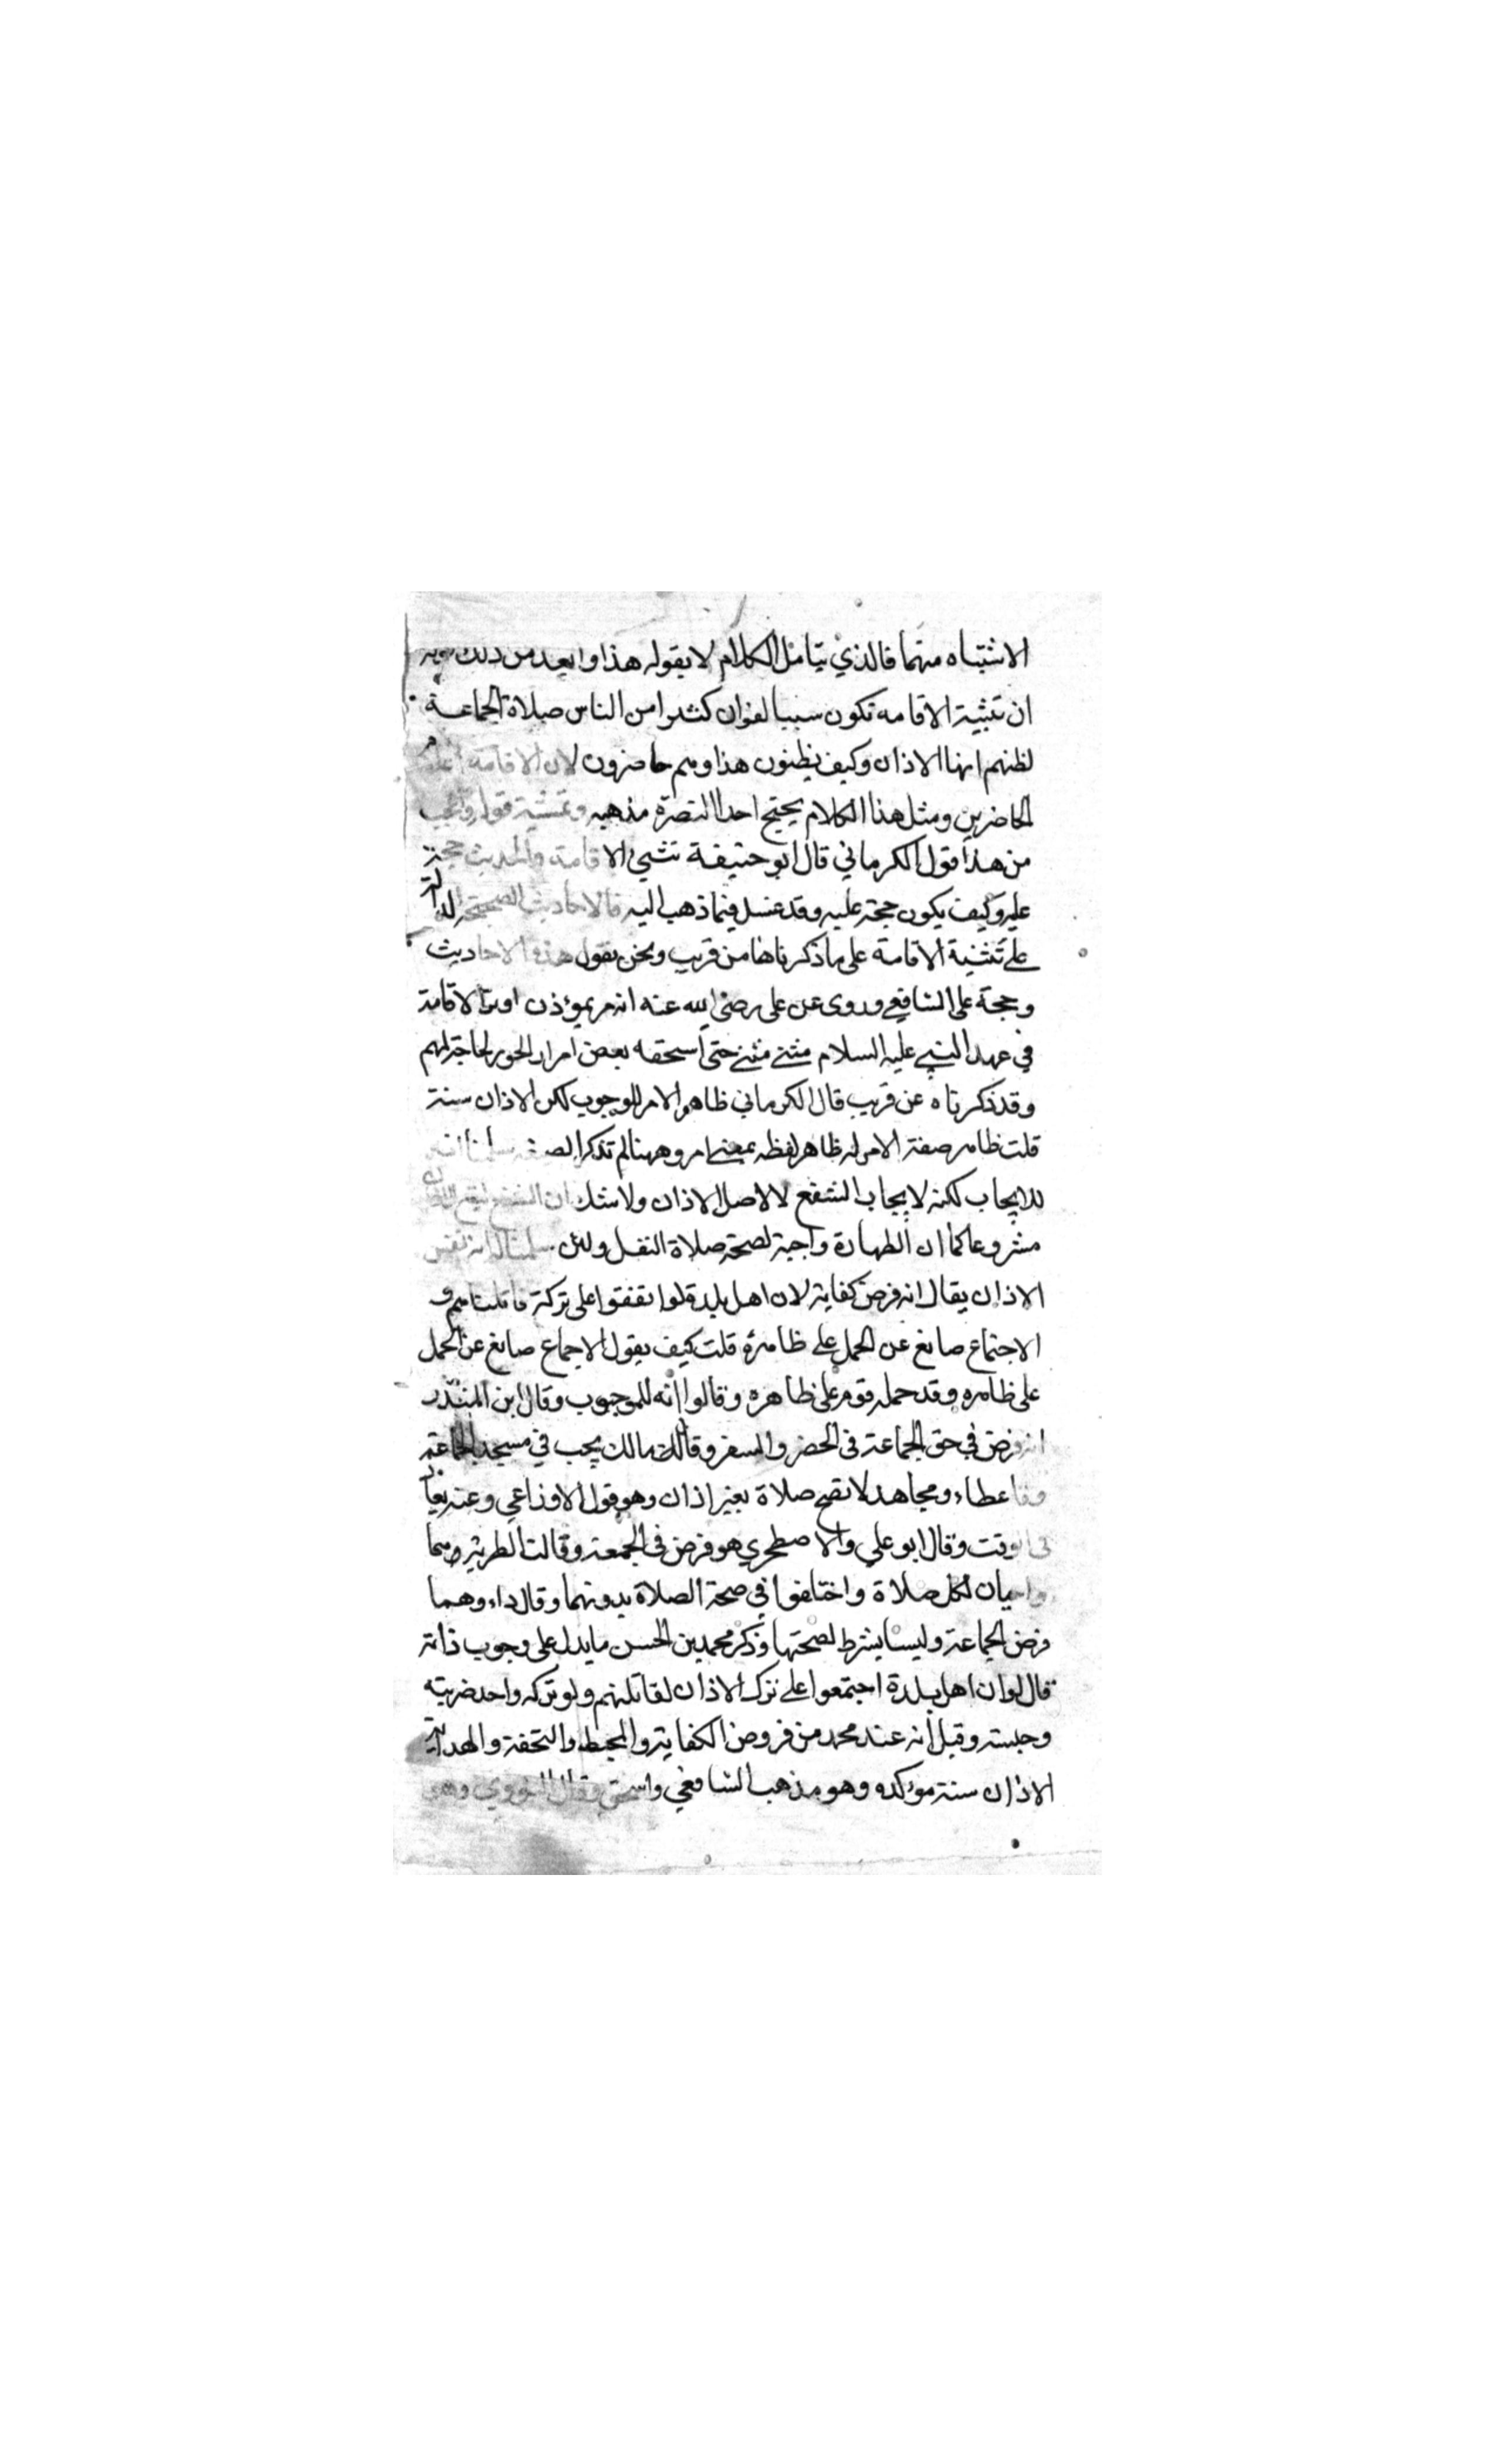 الاشتباه منهما فالذي يتامل الكلام لا يقول هذا وابعد من ذلك
ان تثنية الاقامه تكون سببا لفوان كثير امن الناس صلاة الجماعة
لظنهم انها الاذان وكيف يظنون هذا وهم حاضرون لان الاقامة اعلام
الحاضرين ومثل هذا الكلام يحتج احد النصرة مذهبه وتمشية قوله واعجب
من هذا قول الكرماني قال ابو حنيفة تثنى الاقامة والحديث حجة
عليه وكيف يكون حجة عليه وقد تمسك فيما ذهب اليه فالاحاديث الصحيحة الدالة
على تثنية الاقامة على ما ذكرناها من قريب ونحن نقول هذه الاحاديث
وحجة على الشافعي وروى عن على رضى الله عنه انه مر بمؤذن اوتر الاقامة
في عهد النبي عليه السلام مثنى مثنى حتى استحقه بعض امراء الجور لحاجة لهم
وقد ذكرناه عن قريب قال الكرماني ظاهر الامر للوجوب لكن الاذان سنة
قلت ظاهر صفة الامر له ظاهر لفظه بمعنى امر وههنا لم تذكر الصفة سلمنا انه
للايجاب لكنه لايجاب الشفع لا لاصل الاذان ولا شك ان الشفع ليقع الاذان
مشروعا كما ان الطهارة واجبة لصحة صلاة النفل ولئن سلمنا انه نفس
الاذان يقال انه فرض كفاية لان اهل بلدة لو اتفقوا على تركة قاتلناهم و
الاجتماع صانع عن الحمل على ظاهرة قلت كيف يقول الاجماع صانع عن الحمل
على ظاهره وقد حمله قوم على ظاهره وقالوا انه للوجوب وقال ابن المنذر
انه فرض في حق الجماعة في الحضر والسفر وقال مالك يجب في مسجد الجماعة
وقا عطاء ومجاهد لا تصح صلاة بغير اذان وهو قول الاوزاعي وعنه يعاد
في الوقت وقال ابو علي والاصطخري هو فرض في الجمعة وقالت الظاهرية هما
واجبان لكل صلاة واختلفوا في صحة الصلاة بدونهما وقال داء وهما
فرض الجماعة وليسا بشرط لصحتها وذكر محمد بن الحسن ما يدل على وجوب ذاته
قال لو ان اهل بلدة اجتمعوا على ترك الاذان لقاتلتهم ولو تركه واحد ضربته
وحبسته وقيل انه عند محمد من فروض الكفاية والمحيط والتحفة والهداية
الاذان سنة مؤكده وهو مذهب الشافعي واسحق وقال النووي وهي